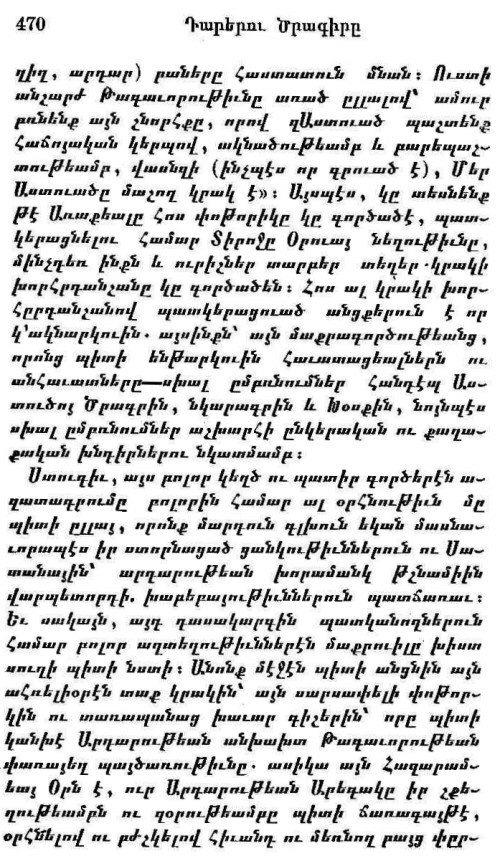 470 Դարերու Ծրագիրը
ղիղ, արդար) բաները հաստատուն մնան։ Ուստի
անշարժ Թագաւորութիւնը առած ըլլալով՝ ամուր
բռնենք այն շնորհքը, որով զԱստուած պաշտենք
հաճոյական կերպով, ակնածութեամբ և բարեպաշ-
տութեամբ, վասնզի (ինչպէս որ գրուած է), Մեր
Աստուածը մաշող կրակ է»։ Այսպէս, կը տեսնենք
թէ Առաքեալը հոս փոթորիկը կը գործածէ, պատ-
կերացնելու համար Տիրոջը Օրուայ նեղութիւնը,
մինչդեռ ինքն և ուրիշներ տարբեր տեղեր կրակի
խորհրդանշանը կը գործածեն։ Հոս ալ կրակի խոր-
հըրդանշանով պատկերացուած անցքերուն է որ
կ՚ակնարկուին. այսինքն՝ այն մաքրագործութեանց,
որոնց պիտի ենթարկուին հաւատացեալներն ու
անհաւատները—սխալ ըմբռնումներ հանդէպ Աս-
տուծոյ Ծրագրին, նկարագրին և Խօսքին, նոյնպէս
սխալ ըմբռնումներ աշխարհի ընկերական ու քաղա-
քական խնդիրներու նկատմամբ։
Ստուգիւ, այս բոլոր կեղծ ու պատիր գործերէն ա-
զատագրումը բոլորին համար ալ օրհնութիւն մը
պիտի ըլլայ, որոնք մարդուն գլխուն եկան մասնա-
ւորապէս իր ստորնացած ցանկութիւններուն ու Սա-
տանային՝ արդարութեան խորամանկ թշնամիին
վարպետորդի. խաբեբայութիւններուն պատճառաւ։
Եւ սակայն, այդ դասակարգին պատկանողներուն
համար բոլոր աղտեղութիւններէն մաքրուիլը խիստ
սուղի պիտի նստի։ Անոնք մէջէն պիտի անցնին այն
ահռելիօրէն տաք կրակին՝ այն սարսափելի փոթոր-
կին ու տառապանաց խաւար գիշերին՝ որը պիտի
կանխէ Արդարութեան անխախտ Թագաւորութեան
փառայեղ պայծառութիւնը. ասիկա այն Հազարամ-
եայ Օրն է, ուր Արդարութեան Արեգակը իր շքե-
ղութեամբն ու զօրութեամբը պիտի ճառագայթէ,
օրհնելով ու բժշկելով հիւանդ ու մեռնող բայց փըր-